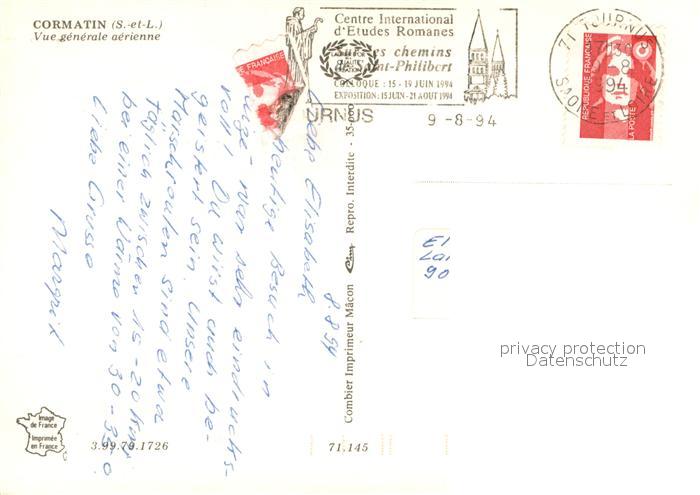 CORMATIN (S.-et-L.)
Vue générale aérienne
Centre International
d'Etudes Romanes
es chemins
nt-Philibert
COLLOQUE : 15 - 19 JUIN 1994
EXPOSITION : 15 JUIN - 21 AOUT 1994
URNUS
9 -8-94
71 TOURNUS
8
94
SAONE ET LOIRE
REPUBLIQUE FRANÇAISE
LA POSTE
8.8.94
Liebe Elisabeth
heutige Besuch in
war sehr eindrucks-
voll! Du wirst auch be-
geistert sein. Unsere
Marschrouten sind etwa
täglich zwischen 15-20 km
bei einer Wärme von 30-33°
Liebe Grüsse
Margrit
Combier Imprimeur Mâcon Cim Repro. Interdite - 35-000
El
Lai
90
privacy protection
Datenschutz
Image
de France
Imprimée
en France
3.99.79.1726
71.145